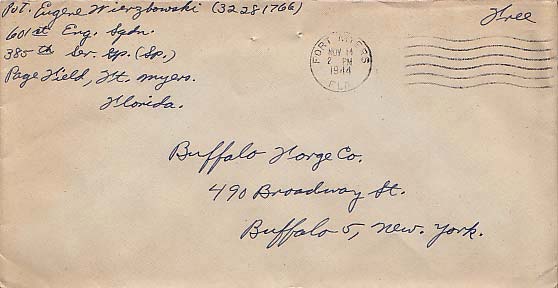 Pvt. Eugene Wierzbowski (32281766)
601st Eng. Sqdn.
385th Ser. Gp. (Sp.)
Page Field, Ft. Myers.
Florida.
Free
FORT MYERS
NOV 14
2 PM
1944
FLA.
Buffalo Forge Co.
490 Broadway St.
Buffalo 5, New York.